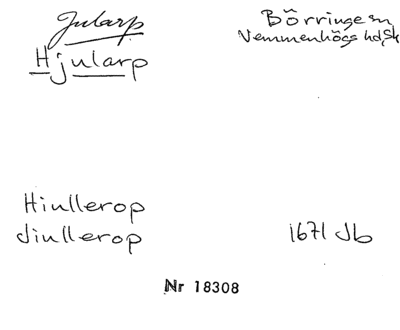 Jularp
Börringe sn
Vemmenhögs hd, Sk
Hjularp
Hiullerop
Jiullerop
1671 Jb
Nr 18308